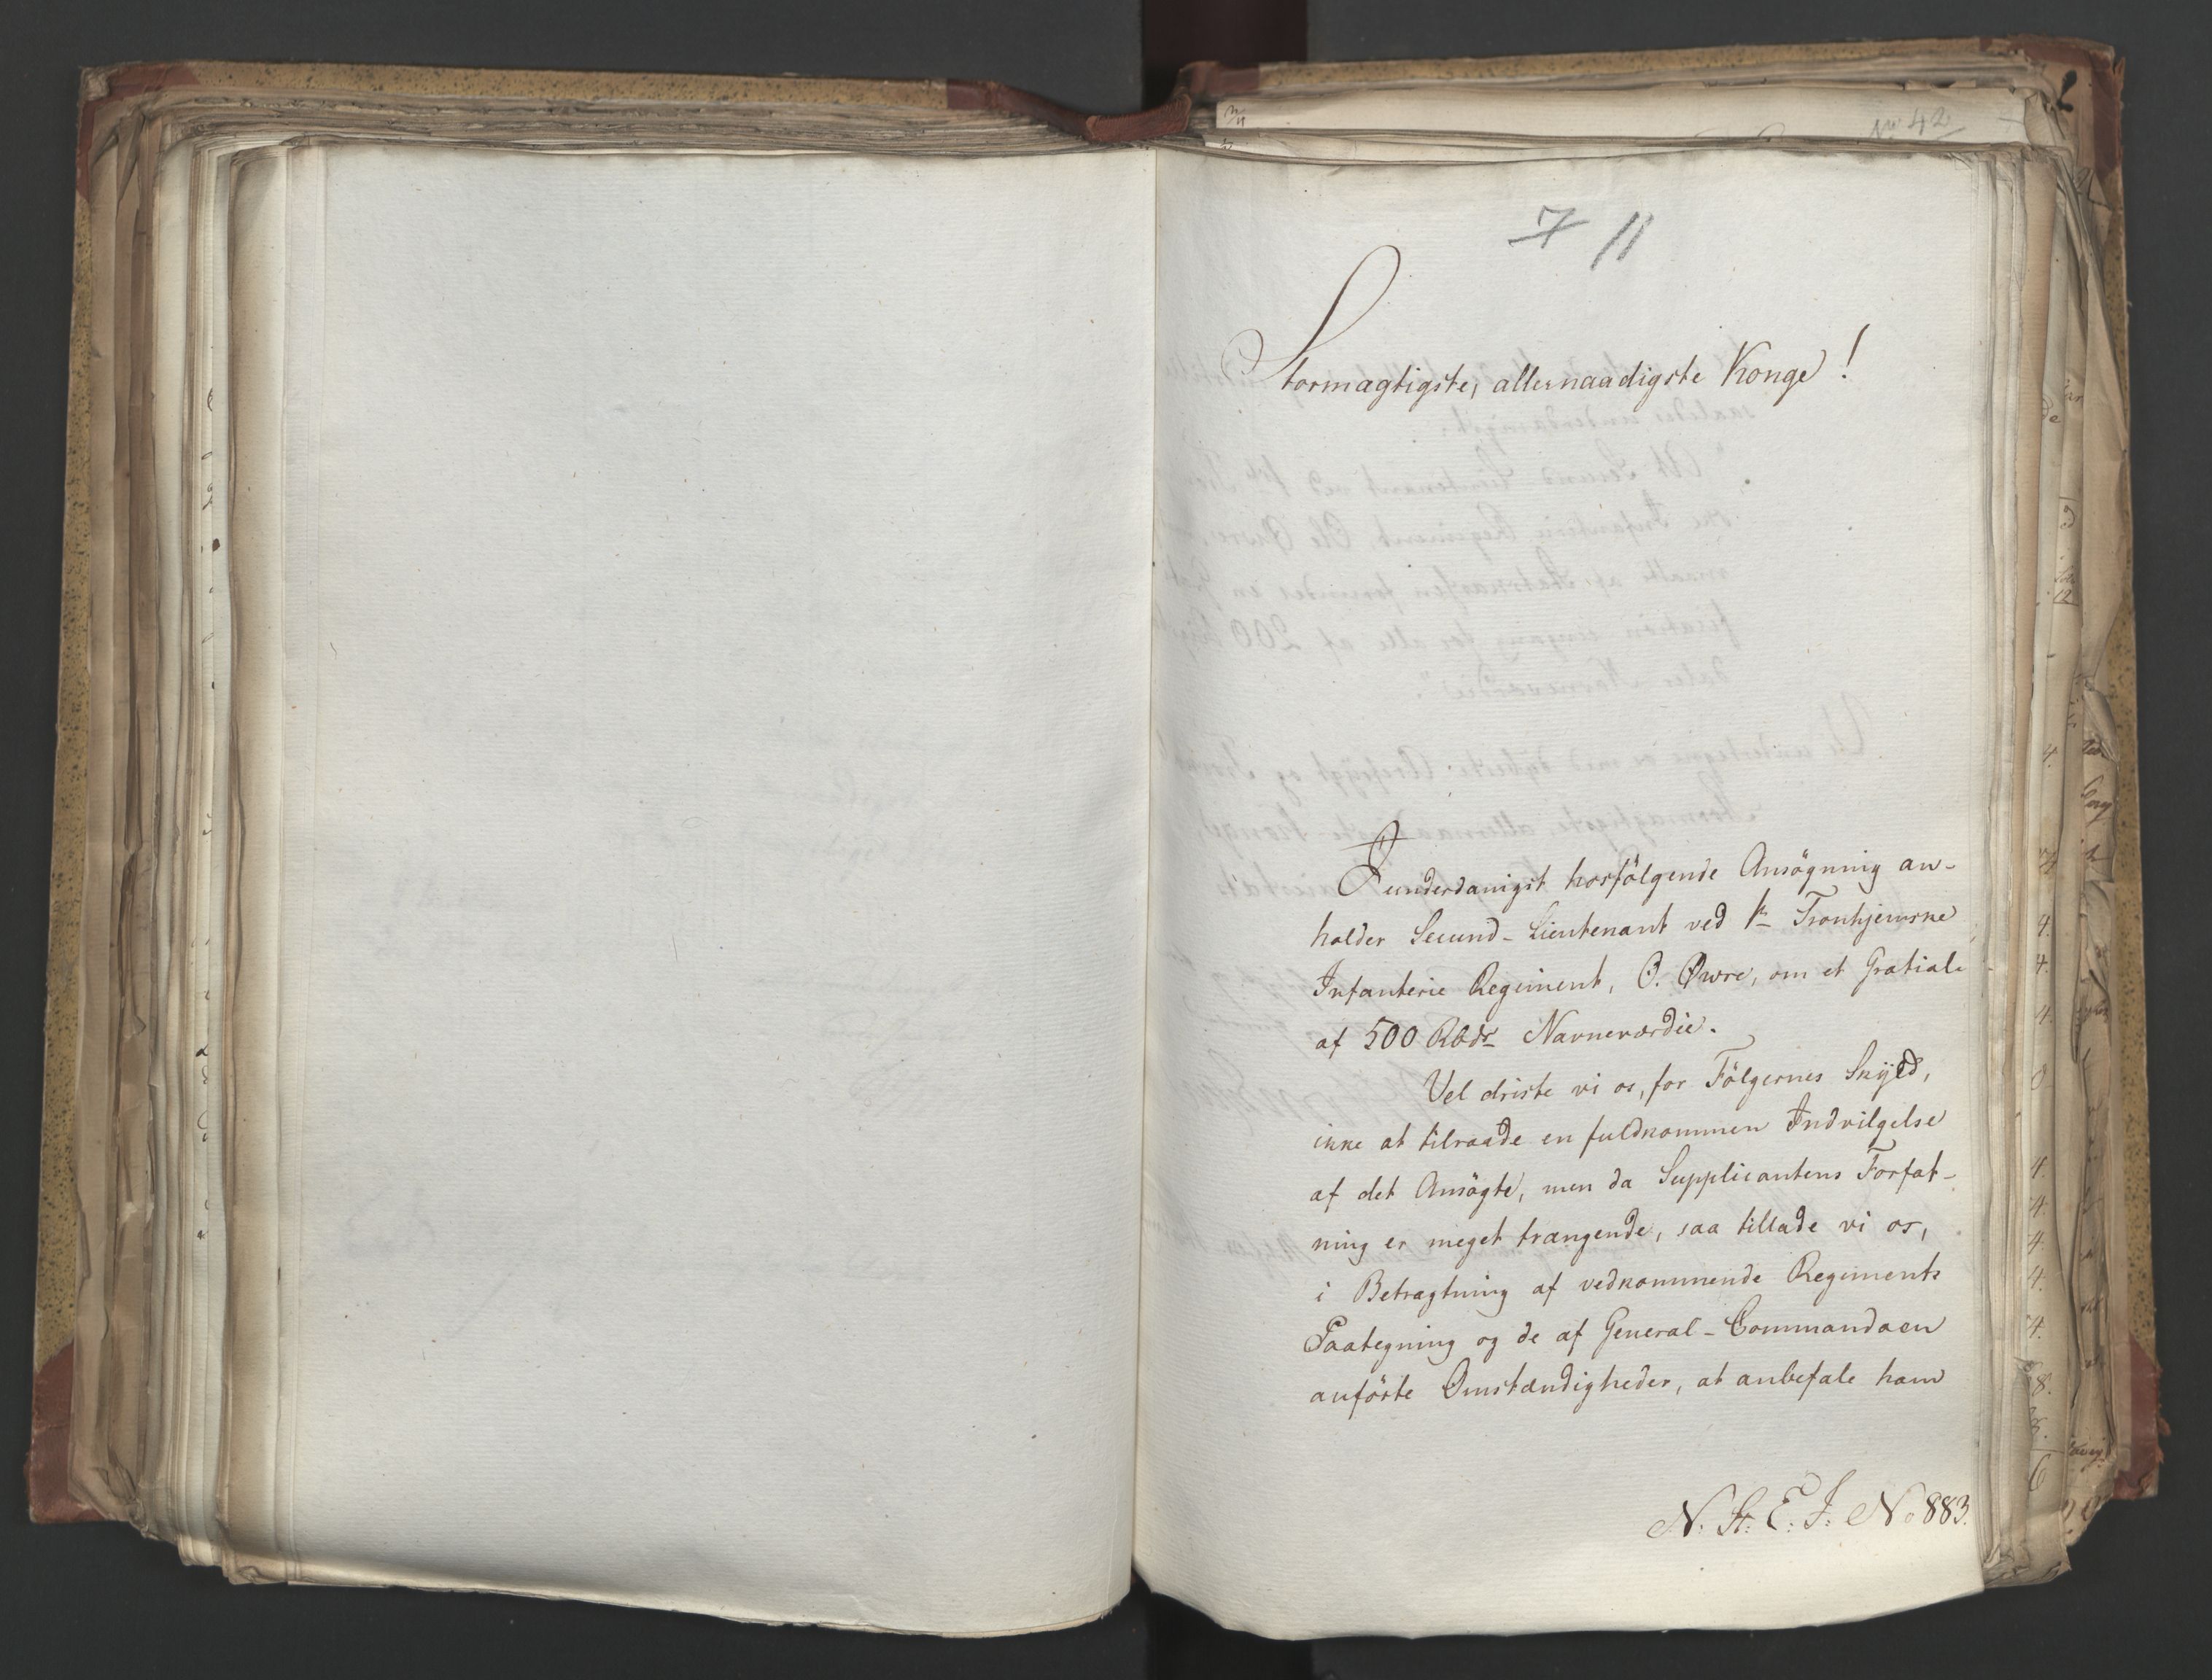 7 11
Stormagtigste, allernaadigste Konge!
I underdanigst hosfölgende Ansögning an-
holder Secund-Lieutenant ved 1ste Tronhjemske
Infanterie Regiment, O. Øwre, om et Gratiale
af 500 Rbdr Navneværdie.
Vel driste vi os, for Fölgernes Skÿld,
ikke at tilraade en fuldkommen Indvilgelse
af det Ansögte, men da Supplicantens Forfat-
ning er meget trængende, saa tillade vi os,
i Betragtning af vedkommende Regiments
Paategning og de af General-Commandoen
anförte Omstændigheder, at anbefale ham
N: St: E: J: No 883.
No 42